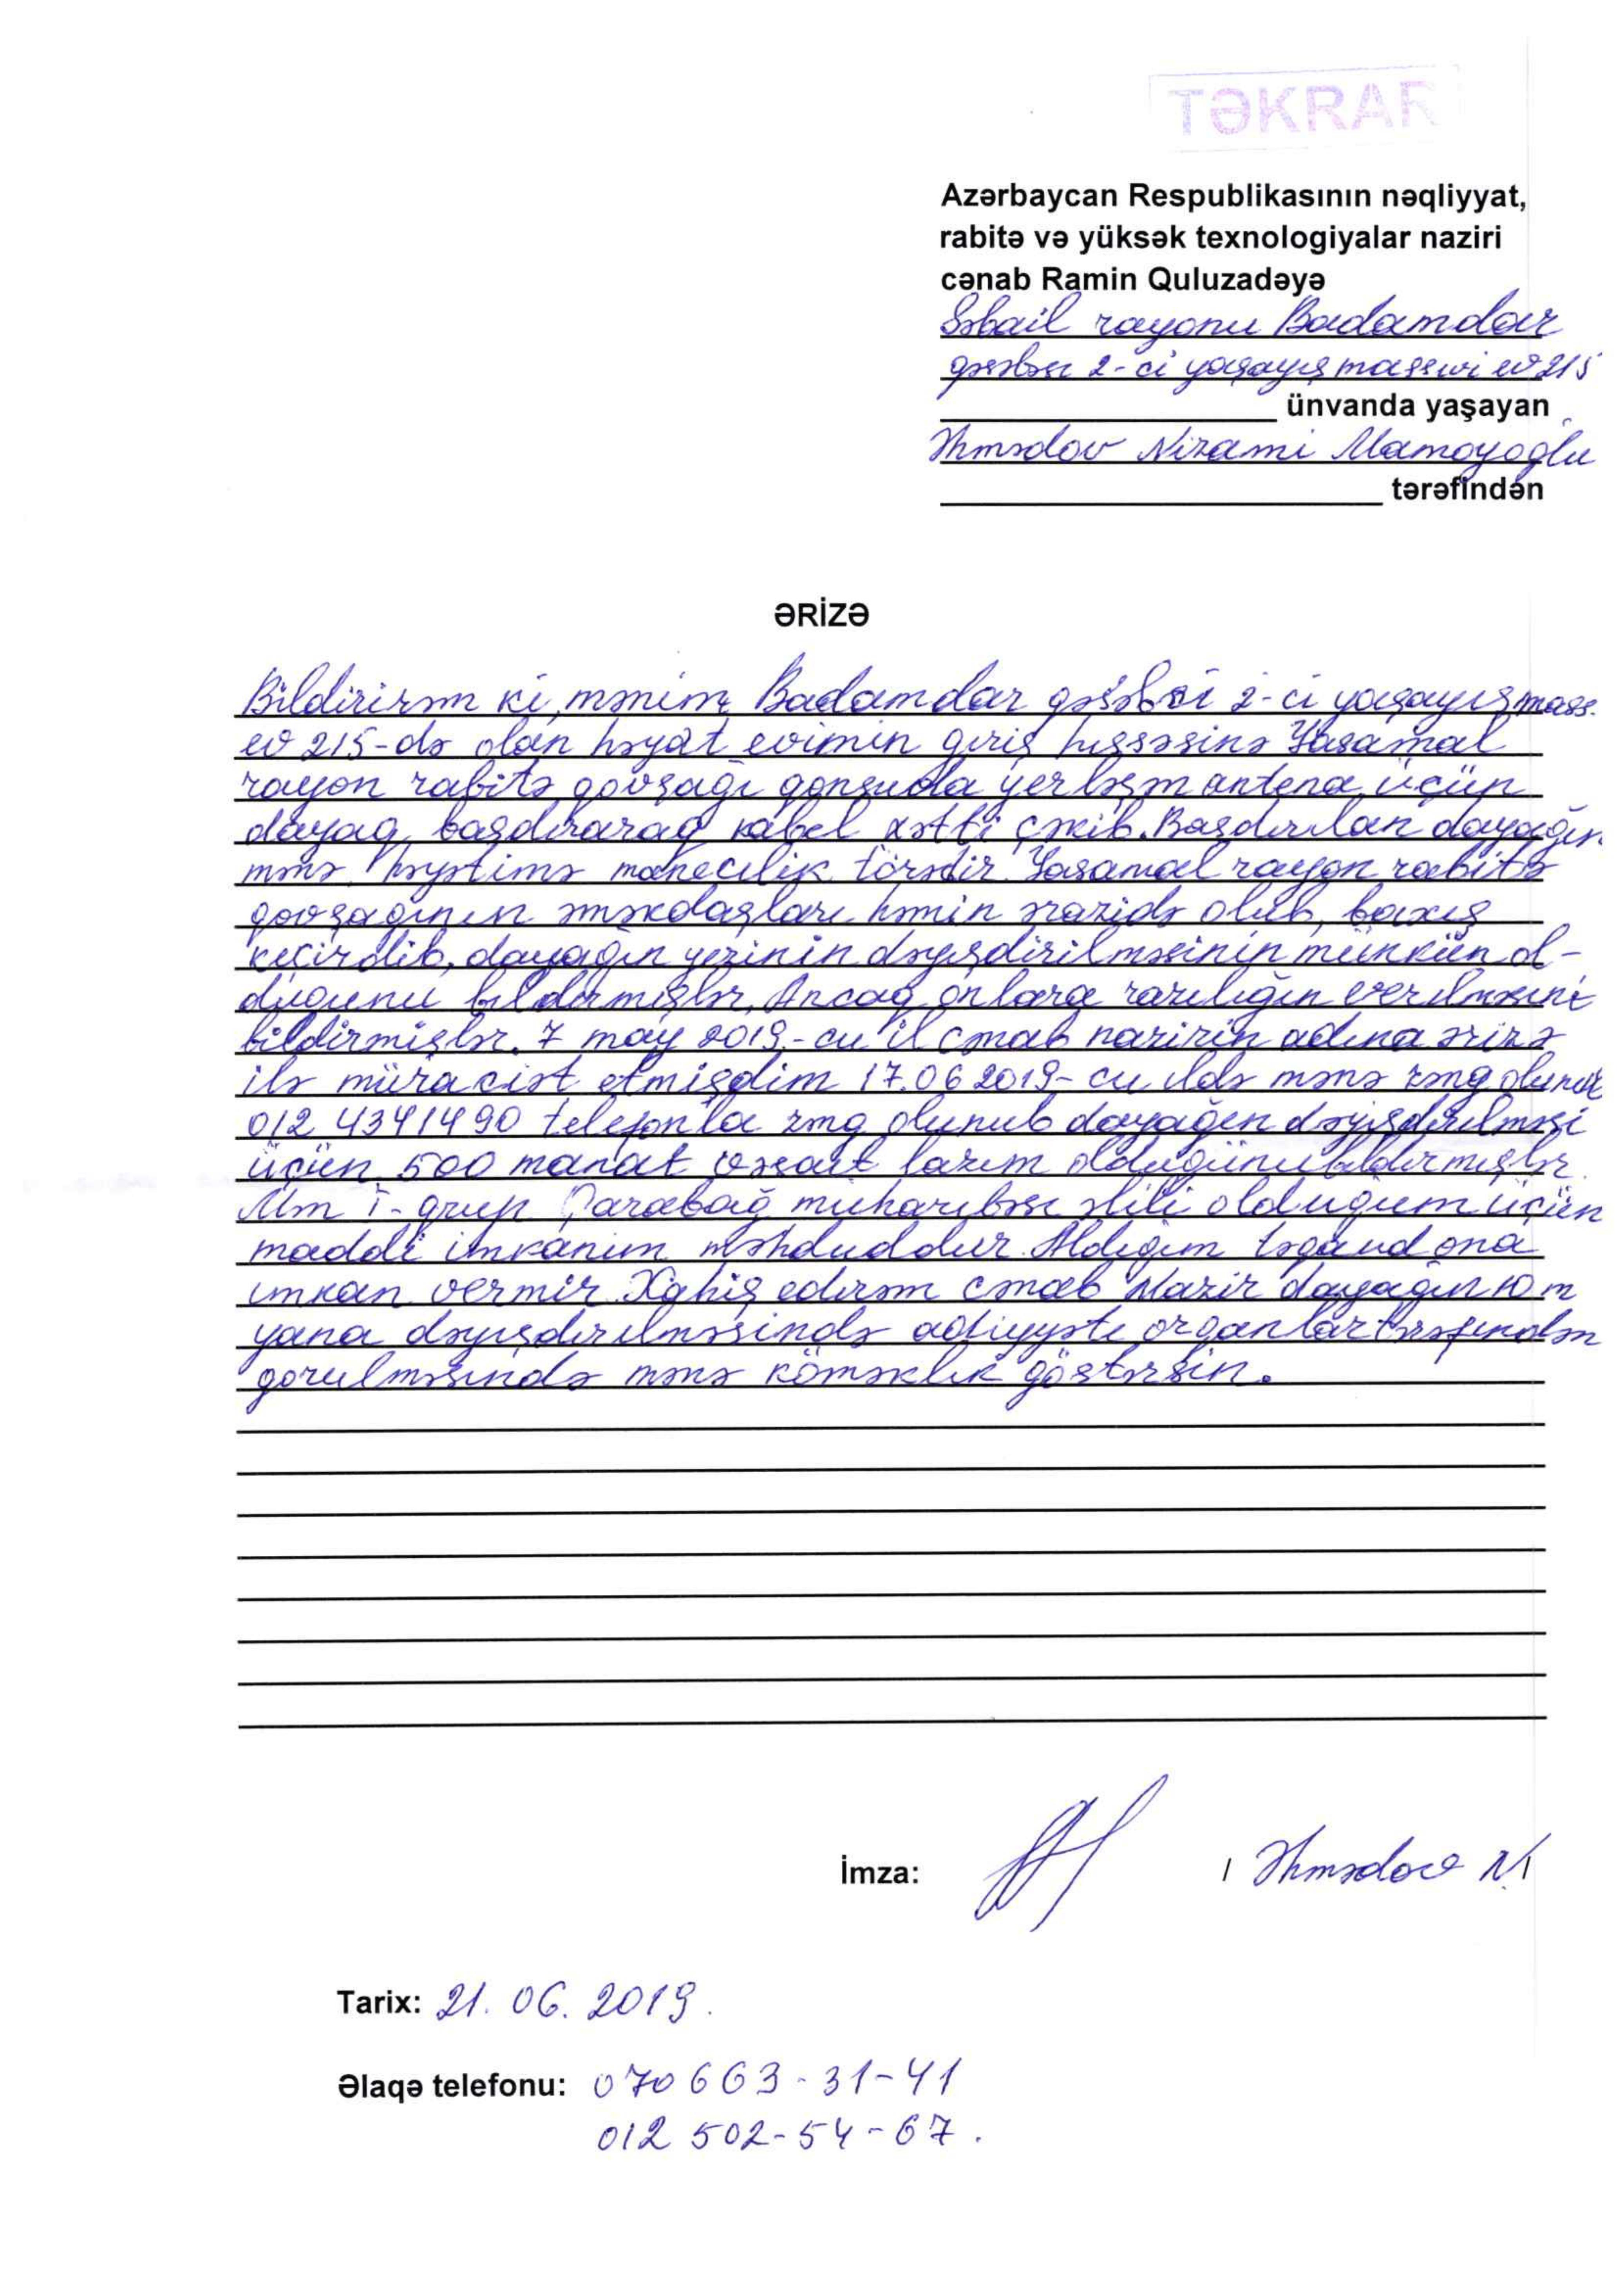 TƏKRAR
Azərbaycan Respublikasının nəqliyyat,
rabitə və yüksək texnologiyalar naziri
cənab Ramin Quluzadəyə
Səbail rayonu Badamdar
qəsəbəsi 2-ci yaşayış massivi ev 215
ünvanda yaşayan
Əhmədov Nizami Mamoyoğlu
tərəfindən
ƏRİZƏ
Bildirirəm ki, mənim Badamdar qəsəbəsi 2-ci yaşayış mass.
ev 215-də olan həyət evimin giriş hissəsinə Yasamal
rayon rabitə qovşağı qonşuda yerləşən antena üçün
dayaq basdıraraq kabel xətti çəkib. Basdırılan dayağın
mənə, həyətimə maneçilik törədir. Yasamal rayon rabitə
qovşağının əməkdaşları həmin ərazidə olub, baxış
keçirdib, dayağın yerinin dəyişdirilməsinin münkün ol-
duğunu bildirmişlər, Ancaq onlara razılığın verilməsini
bildirmişlər. 7 may 2019-cu il cənab nazirin adına ərizə
ilə müraciət etmişdim 17.06 2019-cu ildə mənə zəng olunub
012 4341490 telefonla zəng olunub dayağın dəyişdirilməsi
üçün 500 manat vəsait lazım olduğunu bildirmişlər.
Mən I-qrup Qarabağ müharibəsi əlili olduğum üçün
maddi imkanım məhduddur. Aldığım təqaüd ona
imkan vermir. Xahiş edirəm cənab Nazir dayağın 10 m
yana dəyişdirilməsində aidiyyəti orqanlar tərəfindən
görülməsində mənə köməklik göstərsin.
İmza: / Əhmədov N. /
Tarix: 21. 06. 2019.
Əlaqə telefonu: 070 663-31-41
012 502-54-67.